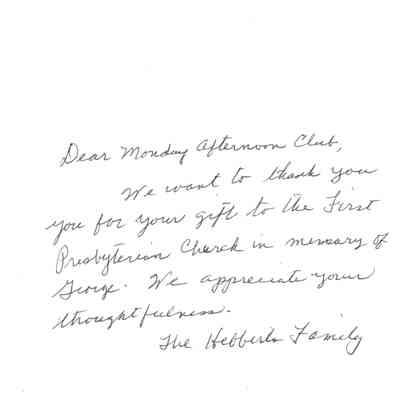 Dear Monday Afternoon Club,
We want to thank you
you for your gift to the First
Presbyterian Church in memory of
George. We appreciate your
thoughtfulness.
The Family